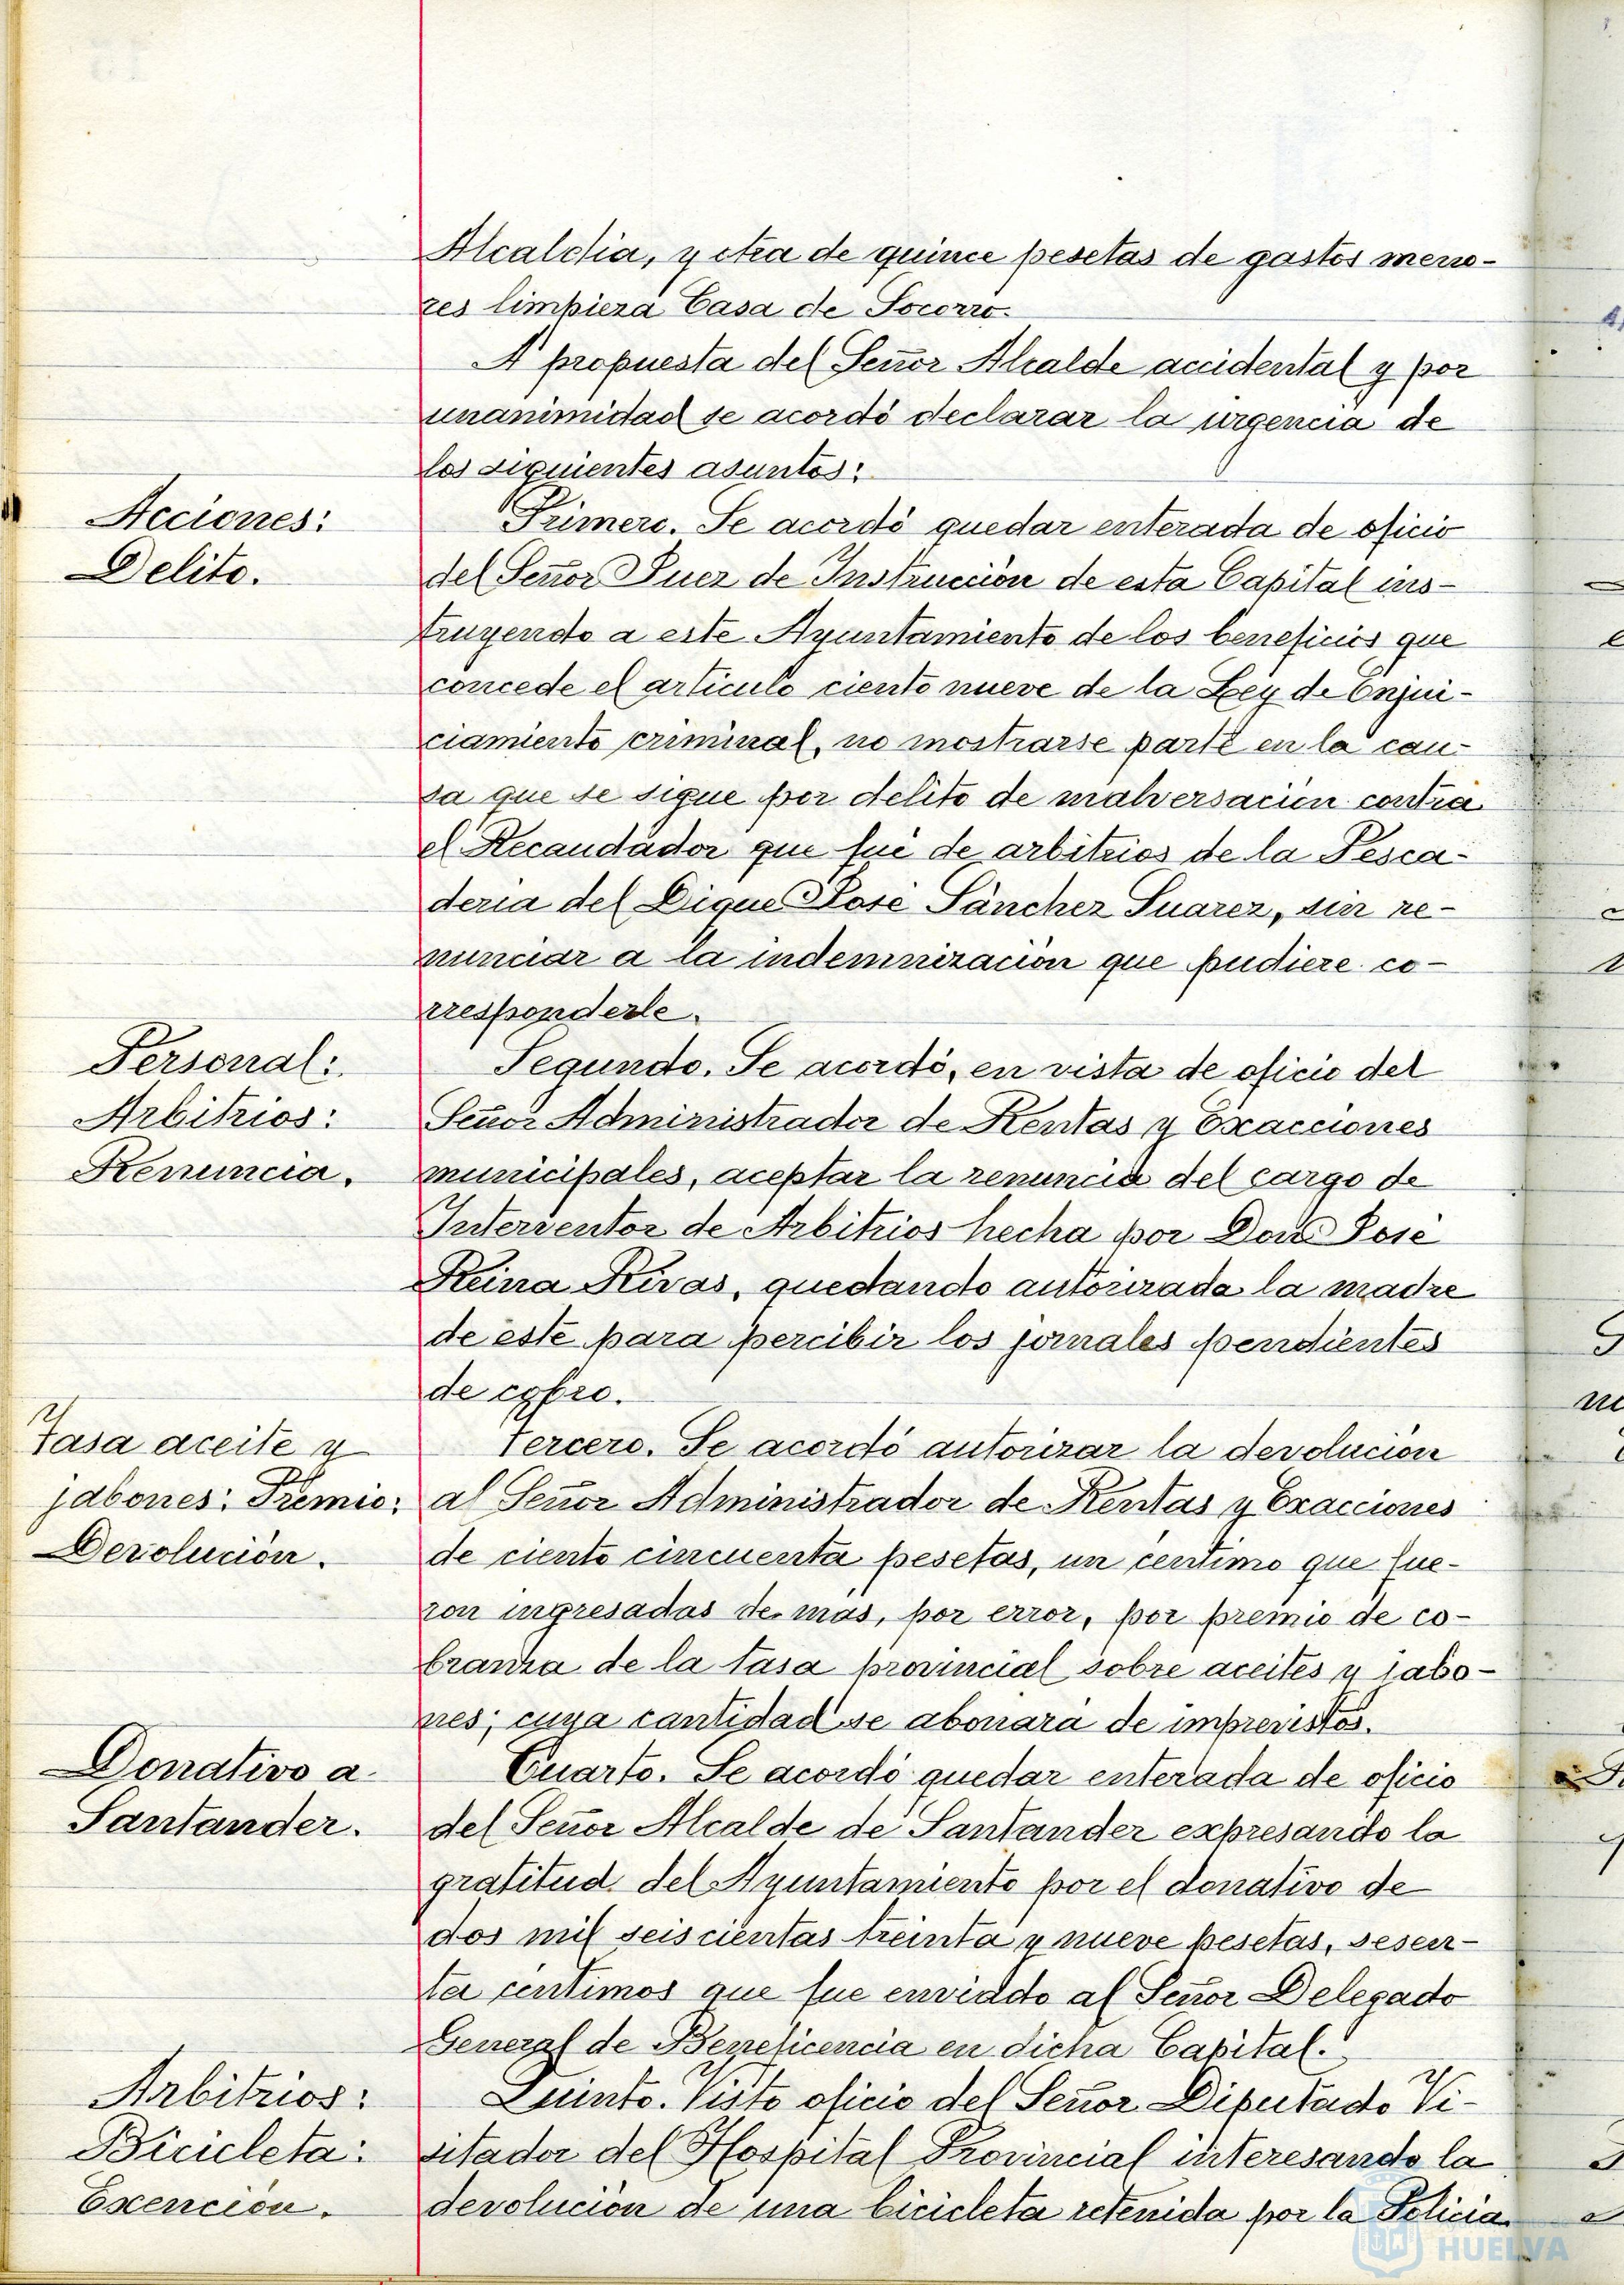 Alcaldia, y otra de quince pesetas de gastos meno-
res limpieza Casa de Socorro.
A propuesta del Señor Alcalde accidental y por
unanimidad se acordó declarar la urgencia de
los siguientes asuntos:
Acciones:
Delito.
Primero. Se acordó quedar enterada de oficio
del Señor Juez de Instrucción de esta Capital ins-
truyendo a este Ayuntamiento de los beneficios que
concede el articulo ciento nueve de la Ley de Enjui-
ciamiento criminal, no mostrarse parte en la cau-
sa que se sigue por delito de malversación contra
el Recaudador que fué de arbitrios de la Pesca-
deria del Dique José Sánchez Suarez, sin re-
nunciar a la indemnización que pudiere co-
rresponderle.
Personal:
Arbitrios:
Renuncia.
Segundo. Se acordó, en vista de oficio del
Señor Administrador de Rentas y Exacciones
municipales, aceptar la renuncia del cargo de
Interventor de Arbitrios hecha por Don José
Reina Rivas, quedando autorizada la madre
de éste para percibir los jornales pendientes
de cobro.
Tasa aceite y
jabones: Premio:
Devolución.
Tercero. Se acordó autorizar la devolución
al Señor Administrador de Rentas y Exacciones
de ciento cincuenta pesetas, un centimo que fue-
ron ingresadas de mas, por error, por premio de co-
branza de la tasa provincial sobre aceites y jabo-
nes; cuya cantidad se abonará de imprevistos.
Donativo a
Santander.
Cuarto. Se acordó quedar enterada de oficio
del Señor Alcalde de Santander expresando la
gratitud del Ayuntamiento por el donativo de
dos mil seiscientas treinta y nueve pesetas, sesen-
ta centimos que fue enviado al Señor Delegado
General de Beneficencia en dicha Capital.
Arbitrios:
Bicicleta:
Exención.
Quinto. Visto oficio del Señor Diputado Vi-
sitador del Hospital Provincial interesando la
devolución de una bicicleta retenida por la Policia
HUELVA